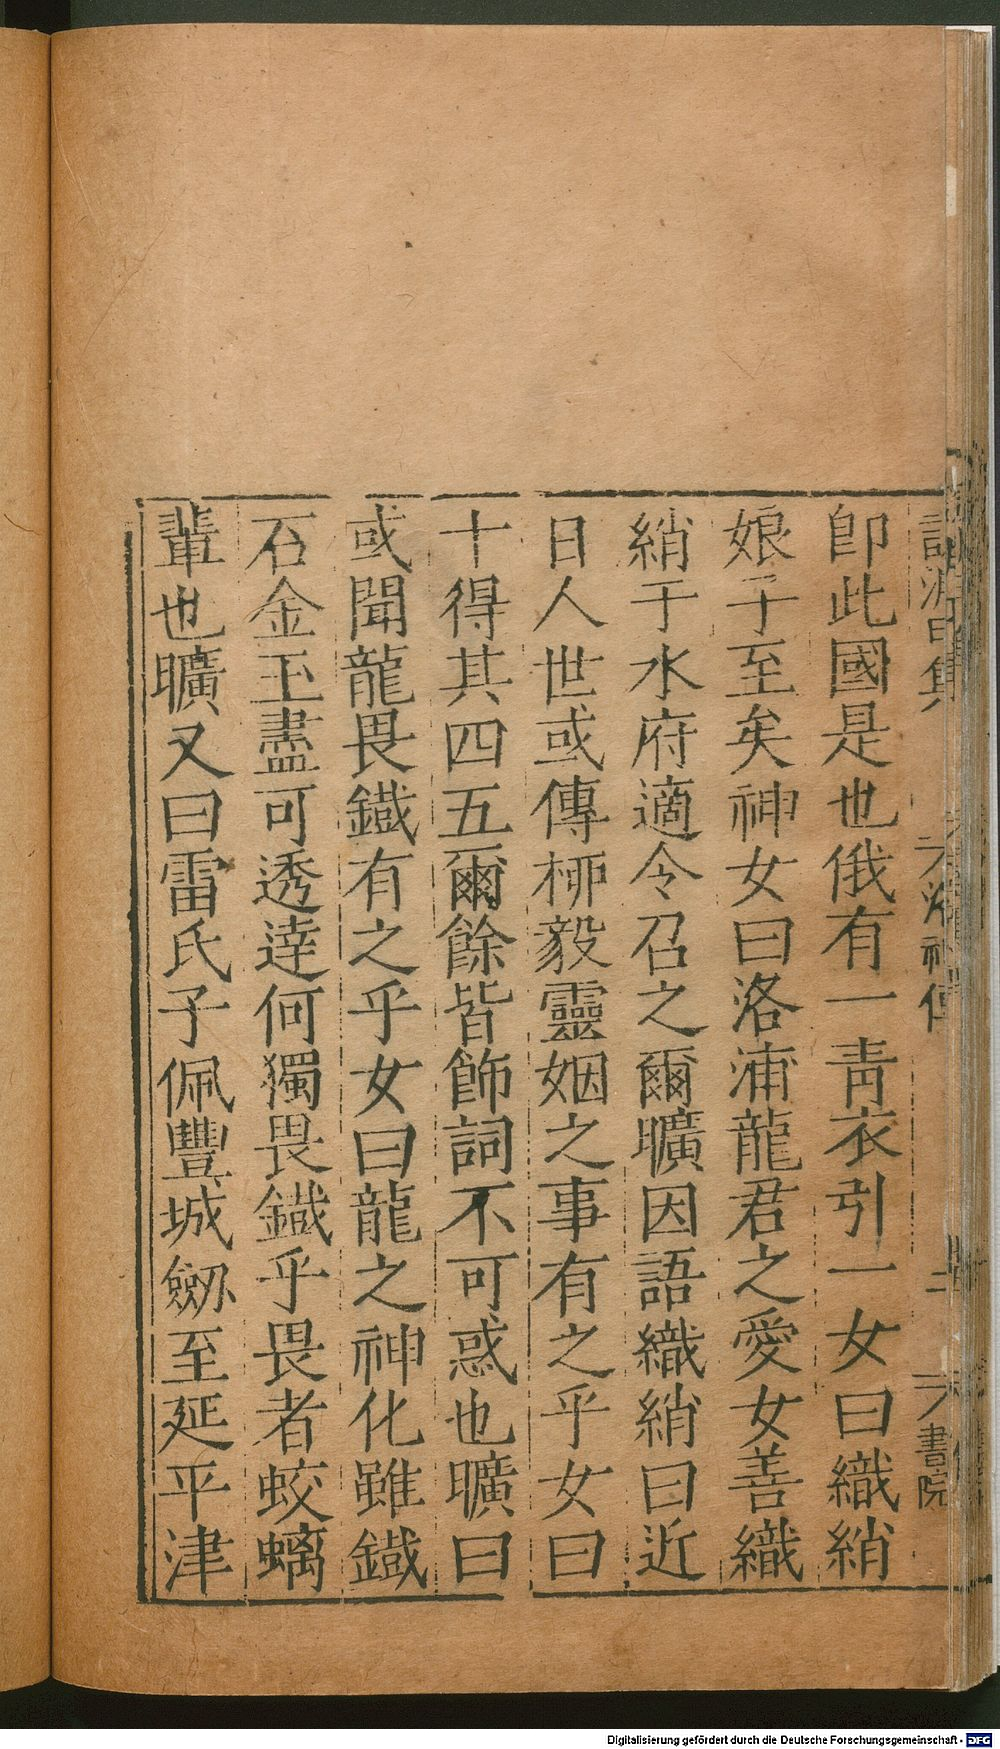 卽此國是也俄有一靑衣引一女曰織綃
娘子至矣神女曰洛浦龍君之愛女善織
綃于水府適令召之爾曠因語織綃曰近
日人世或傳柳毅靈姻之事有之乎女曰
十得其四五爾餘皆飾詞不可惑也曠曰
或聞龍畏鐵有之乎女曰龍之神化雖鐵
石金玉盡可透達何獨畏鐵乎畏者蛟螭
輩也曠又曰雷氏子佩豐城劒至延平津
洛神傳
二
書院
Digitalisierung gefördert durch die Deutsche Forschungsgemeinschaft - DFG